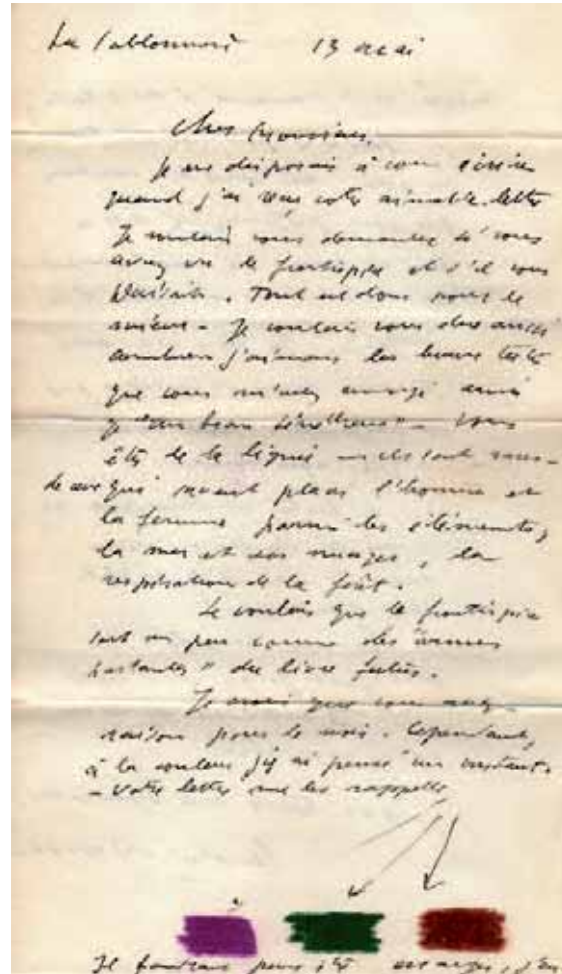 La Sablonnière 13 mai
Cher Monsieur,
Je me disposais à vous écrire
quand j'ai reçu votre aimable lettre
Je voulais vous demander si vous
aviez vu le frontispice et s'il vous
plaisait. Tout est donc pour le
mieux. Je voulais vous dire aussi
combien j'aimais les beaux textes
que vous m'avez envoyé ainsi
q "un beau ténébreux". Vous
êtes de la lignée — ils sont rares —
de ceux qui savent placer l'homme et
la femme parmi les éléments,
la mer et ses nuages, la
respiration de la forêt.
Je voulais que le frontispice
soit un peu comme des "armes
parlantes" du livre futur.
Je crois que vous avez
raison pour le noir. Cependant,
à la couleur j'y ai pensé un instant.
- Votre lettre me les rappelle
Il faudrait pour